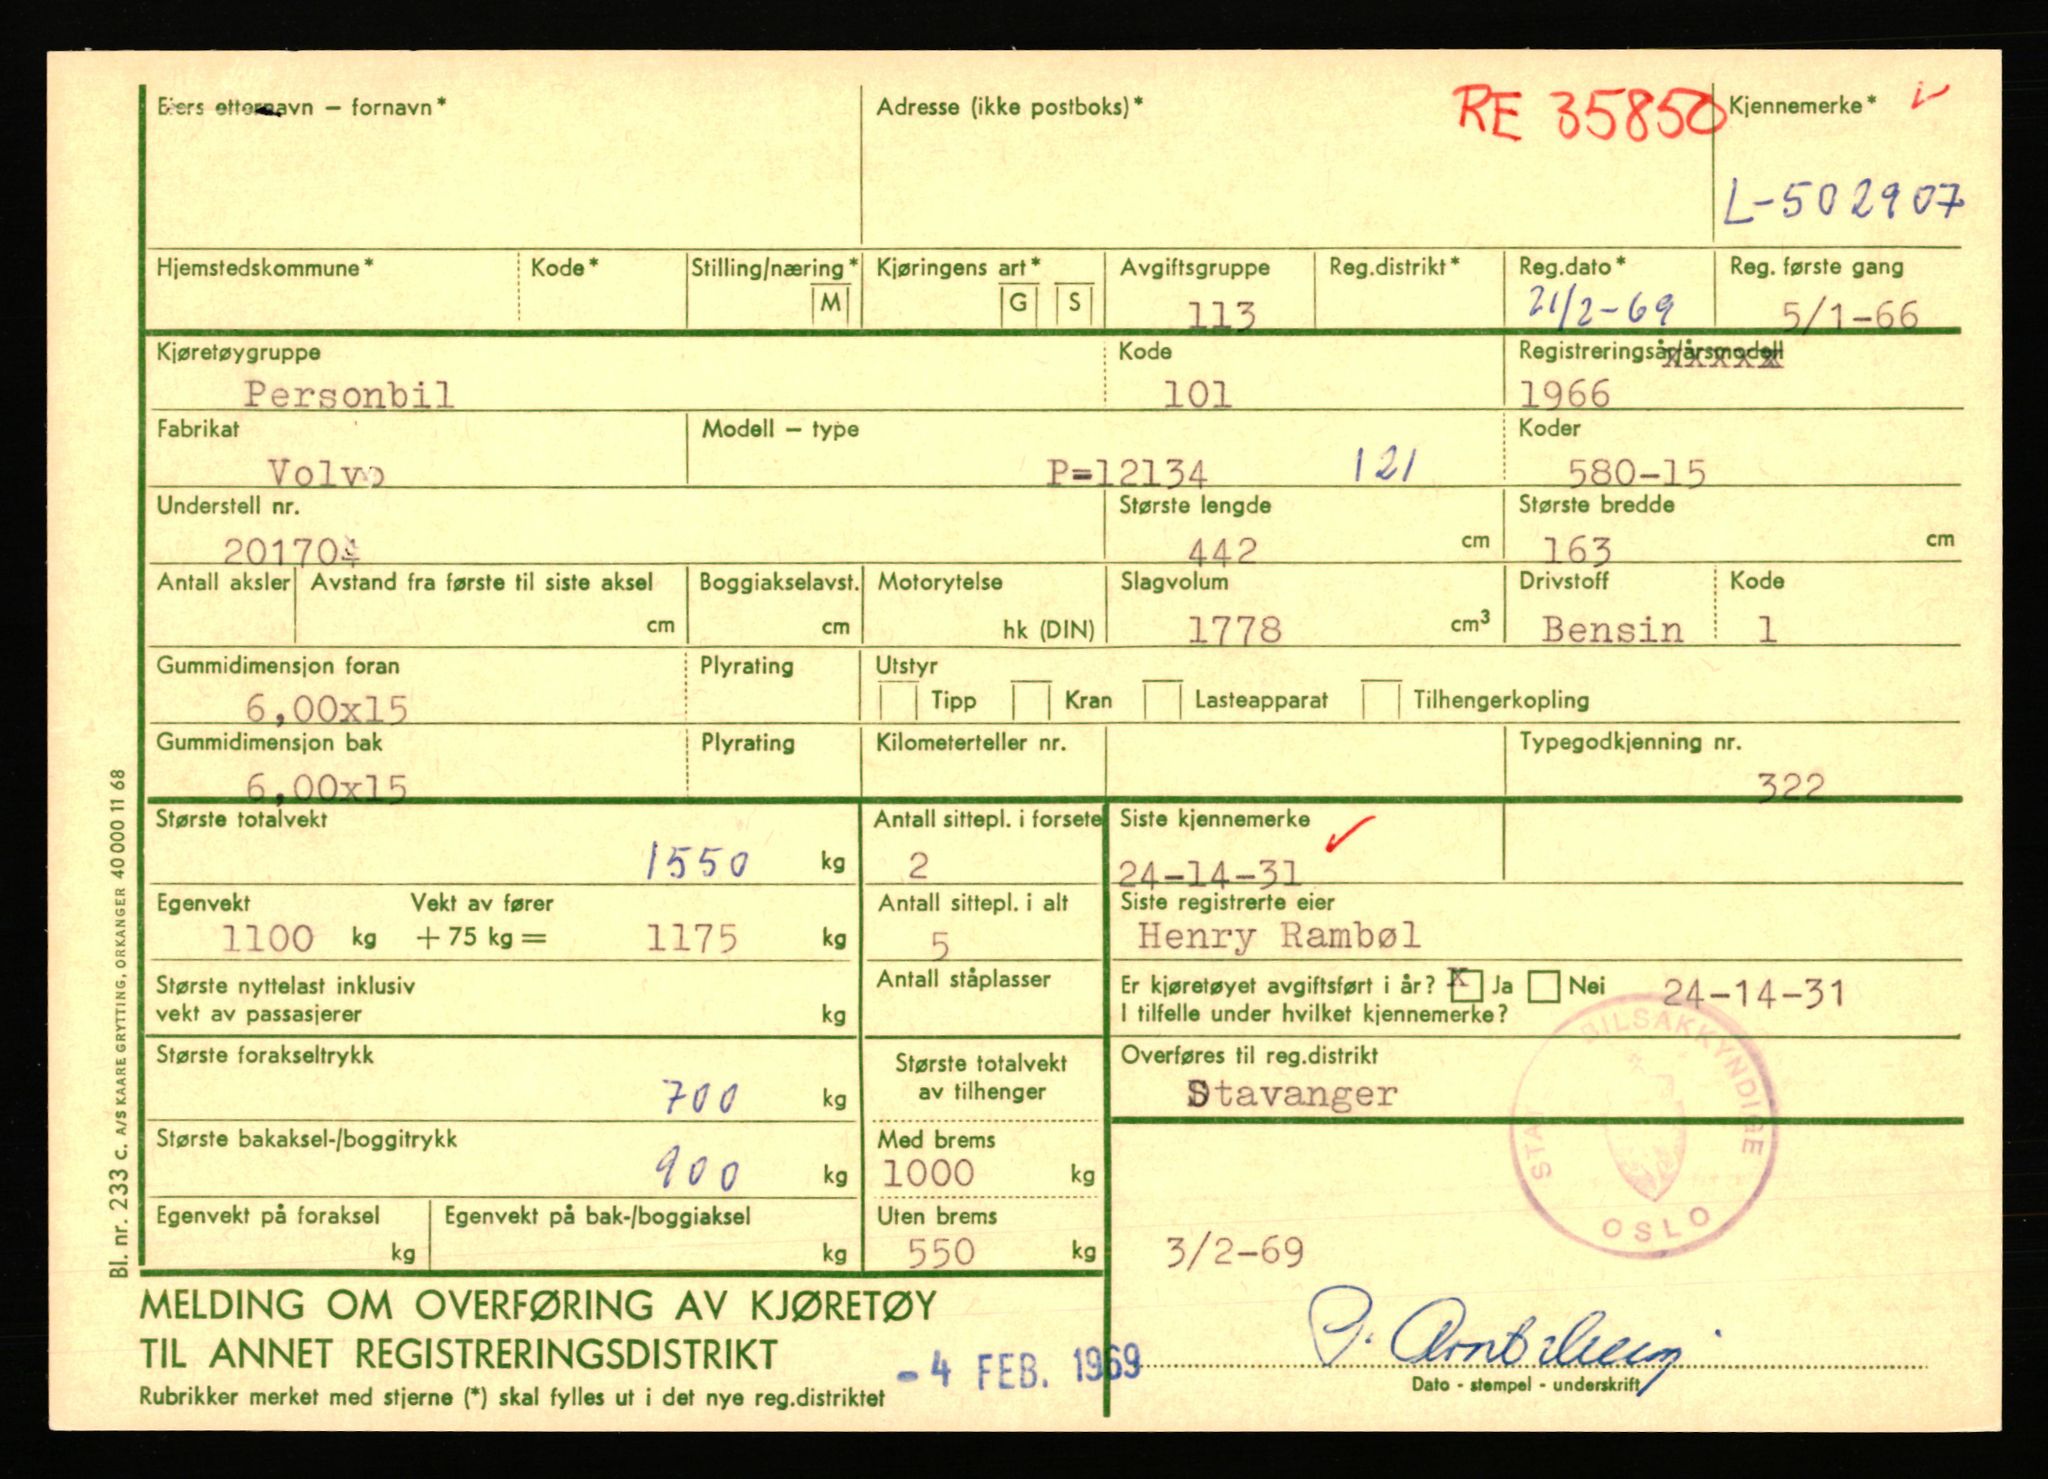 Eiers etternavn – fornavn* Adresse (ikke postboks)* RE 35850 Kjennemerke*
L-502907
Hjemstedskommune* Kode* Stilling/næring* Kjøringens art* Avgiftsgruppe Reg.distrikt* Reg.dato* Reg. første gang
M G S 113 21/2-69 5/1-66
Kjøretøygruppe Kode Registreringsår/årsmodell
xxxxx
Personbil 101 1966
Fabrikat Modell – type Koder
Volvo P=12134 121 580-15
Understell nr. Største lengde Største bredde
201704 442 cm 163 cm
Antall aksler Avstand fra første til siste aksel Boggiakselavst. Motorytelse Slagvolum Drivstoff Kode
cm cm hk (DIN) 1778 cm³ Bensin 1
Gummidimensjon foran Plyrating Utstyr
6,00x15 Tipp Kran Lasteapparat Tilhengerkopling
Gummidimensjon bak Plyrating Kilometerteller nr. Typegodkjenning nr.
6,00x15 322
Største totalvekt Antall sittepl. i forsete Siste kjennemerke
1550 kg 2 24-14-31
Egenvekt Vekt av fører Antall sittepl. i alt Siste registrerte eier
1100 kg + 75 kg = 1175 kg 5 Henry Rambøl
Største nyttelast inklusiv Antall ståplasser Er kjøretøyet avgiftsført i år? x Ja Nei 24-14-31
vekt av passasjerer kg I tilfelle under hvilket kjennemerke?
Største forakseltrykk Største totalvekt Overføres til reg.distrikt
700 kg av tilhenger Stavanger
Største bakaksel-/boggitrykk Med brems
900 kg 1000 kg
Egenvekt på foraksel Egenvekt på bak-/boggiaksel Uten brems
kg kg 550 kg 3/2-69
BILSAKKYNDIGE
OSLO
MELDING OM OVERFØRING AV KJØRETØY
TIL ANNET REGISTRERINGSDISTRIKT
- 4 FEB. 1969
Rubrikker merket med stjerne (*) skal fylles ut i det nye reg.distriktet
Dato - stempel - underskrift
Bl. nr. 233 c. A/S KAARE GRYTTING, ORKANGER 40 000 11 68